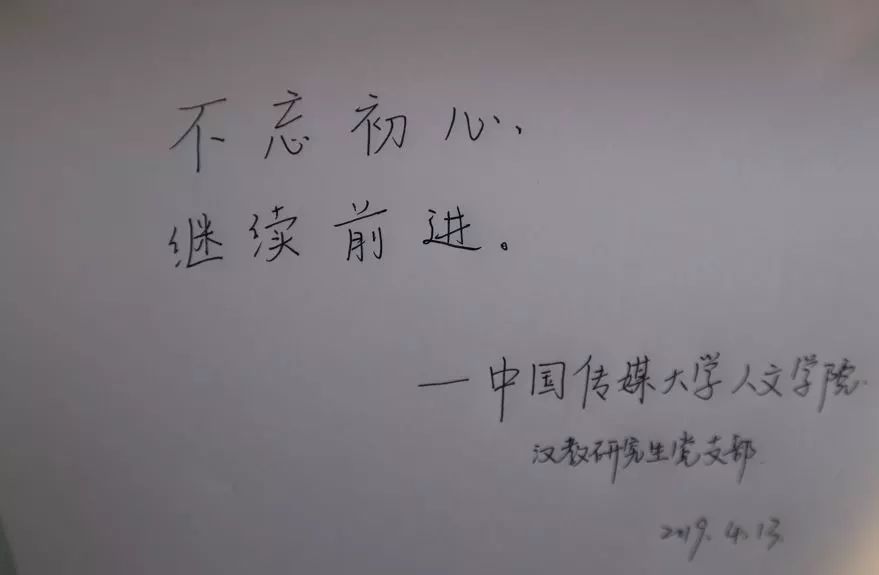 不忘初心、
继续前进。
—中国传媒大学人文学院
汉教研究生党支部
2019.4.13